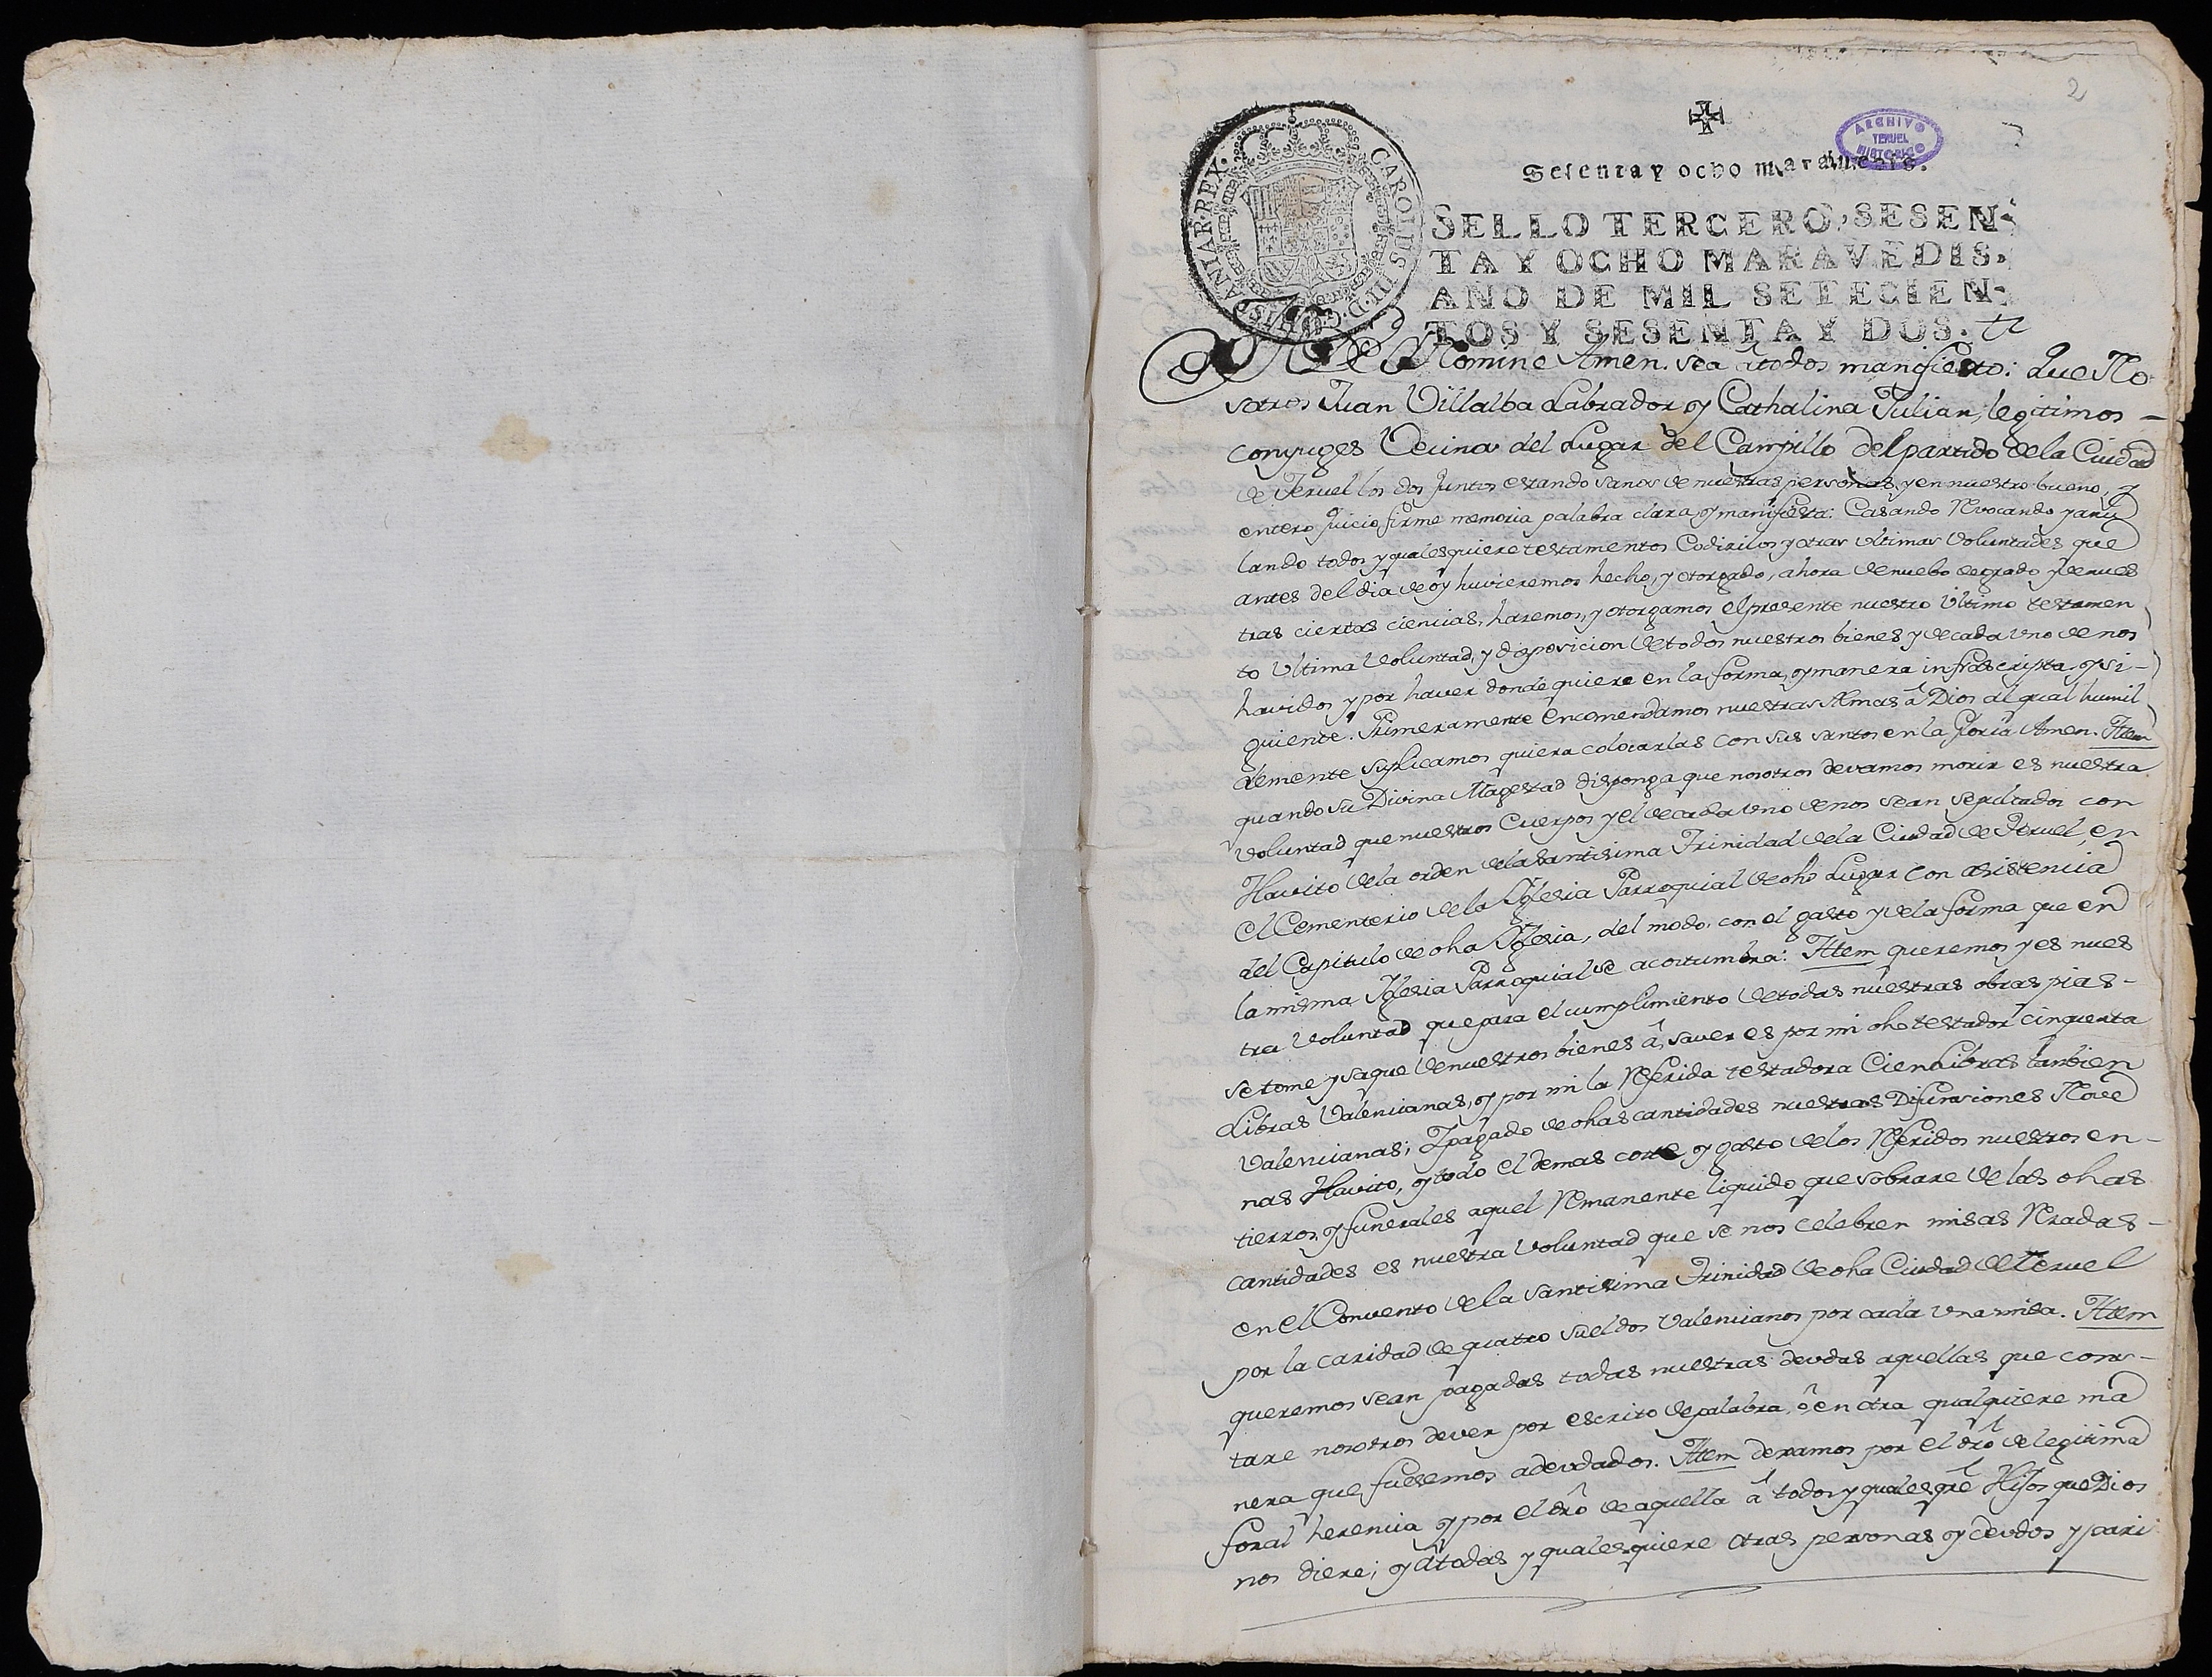 2
ARCHIVO
TERUEL
HISTORICO
Sesenta y ocho maravedis.
CAROLUS III D. G. HISPANIAR. REX.
SELLO TERCERO, SESEN-
TA Y OCHO MARAVEDIS,
AÑO DE MIL SETECIEN-
TOS Y SESENTA Y DOS.
Nomine Amen. sea â todos manifiesto: Que No
sotros Juan Villalba Labrador y Cathalina Julian, legitimos -
conjuges Vecinos del Lugar del Campillo del partido de la Ciudad
de Teruel los dos juntos estando sanos de nuestras personas, y en nuestro bueno, y
entero juicio firme memoria palabra clara, y manifiesta: Casando Revocando y anu
lando todos y qualesquiere testamentos Codicilos y otras ultimas Voluntades que
antes del dia de oy huvieremos hecho, y otorgado, ahora de nuebo de grado y de nues
tras ciertas ciencias, haremos, y otorgamos el presente nuestro Ultimo testamen
to Ultima Voluntad, y disposicion de todos nuestros bienes y de cada uno de nos
havidos y por haver donde quiere en la forma, y manera infrascripta, y si-
guiente. Primeramente encomendamos nuestras Almas â Dios al qual humil
demente suplicamos quiera colocarlas con sus santos en la Gloria Amen. Ittem
quando su Divina Magestad disponga que nosotros devamos morir es nuestra
voluntad que nuestros Cuerpos y el de cada uno de nos sean sepultados con
Havito de la orden de la santisima Trinidad de la Ciudad de Teruel, en
el Cementerio de la Iglesia Parroquial de dho Lugar con asistencia
del Capitulo de dha Iglesia, del modo, con el gasto y de la forma que en
la misma Iglesia Parroquial se acostumbra: Ittem queremos y es nues
tra Voluntad que para el cumplimiento de todas nuestras obras pias -
se tome y saque de nuestros bienes â saver es por mi dho testador cinquenta
Libras Valencianas, y por mi la Referida testadora Cien Libras tanbien
Valencianas; I pagado de dhas cantidades nuestras Difunsiones Nove
nas Havito, y todo el demas coste y gasto de los Referidos nuestros en-
tierros, y funerales aquel Remanente liquido que sobrare de las dhas
cantidades es nuestra Voluntad que se nos celebren misas Rezadas -
en el Convento de la santisima Trinidad de dha Ciudad de Teruel
por la caridad de quatro sueldos Valencianos por cada una misa. Ittem
queremos sean pagadas todas nuestras deudas aquellas que cons-
tare nosotros dever por escrito de palabra, ô en otra qualquiere ma
nera que fuesemos adeudados. Ittem dexamos por el dro de legitima
foral herencia y por el dro de aquella â todos y qualesqre Hijos que Dios
nos diere; y â todas y qualesquiere otras personas y deudos y pari